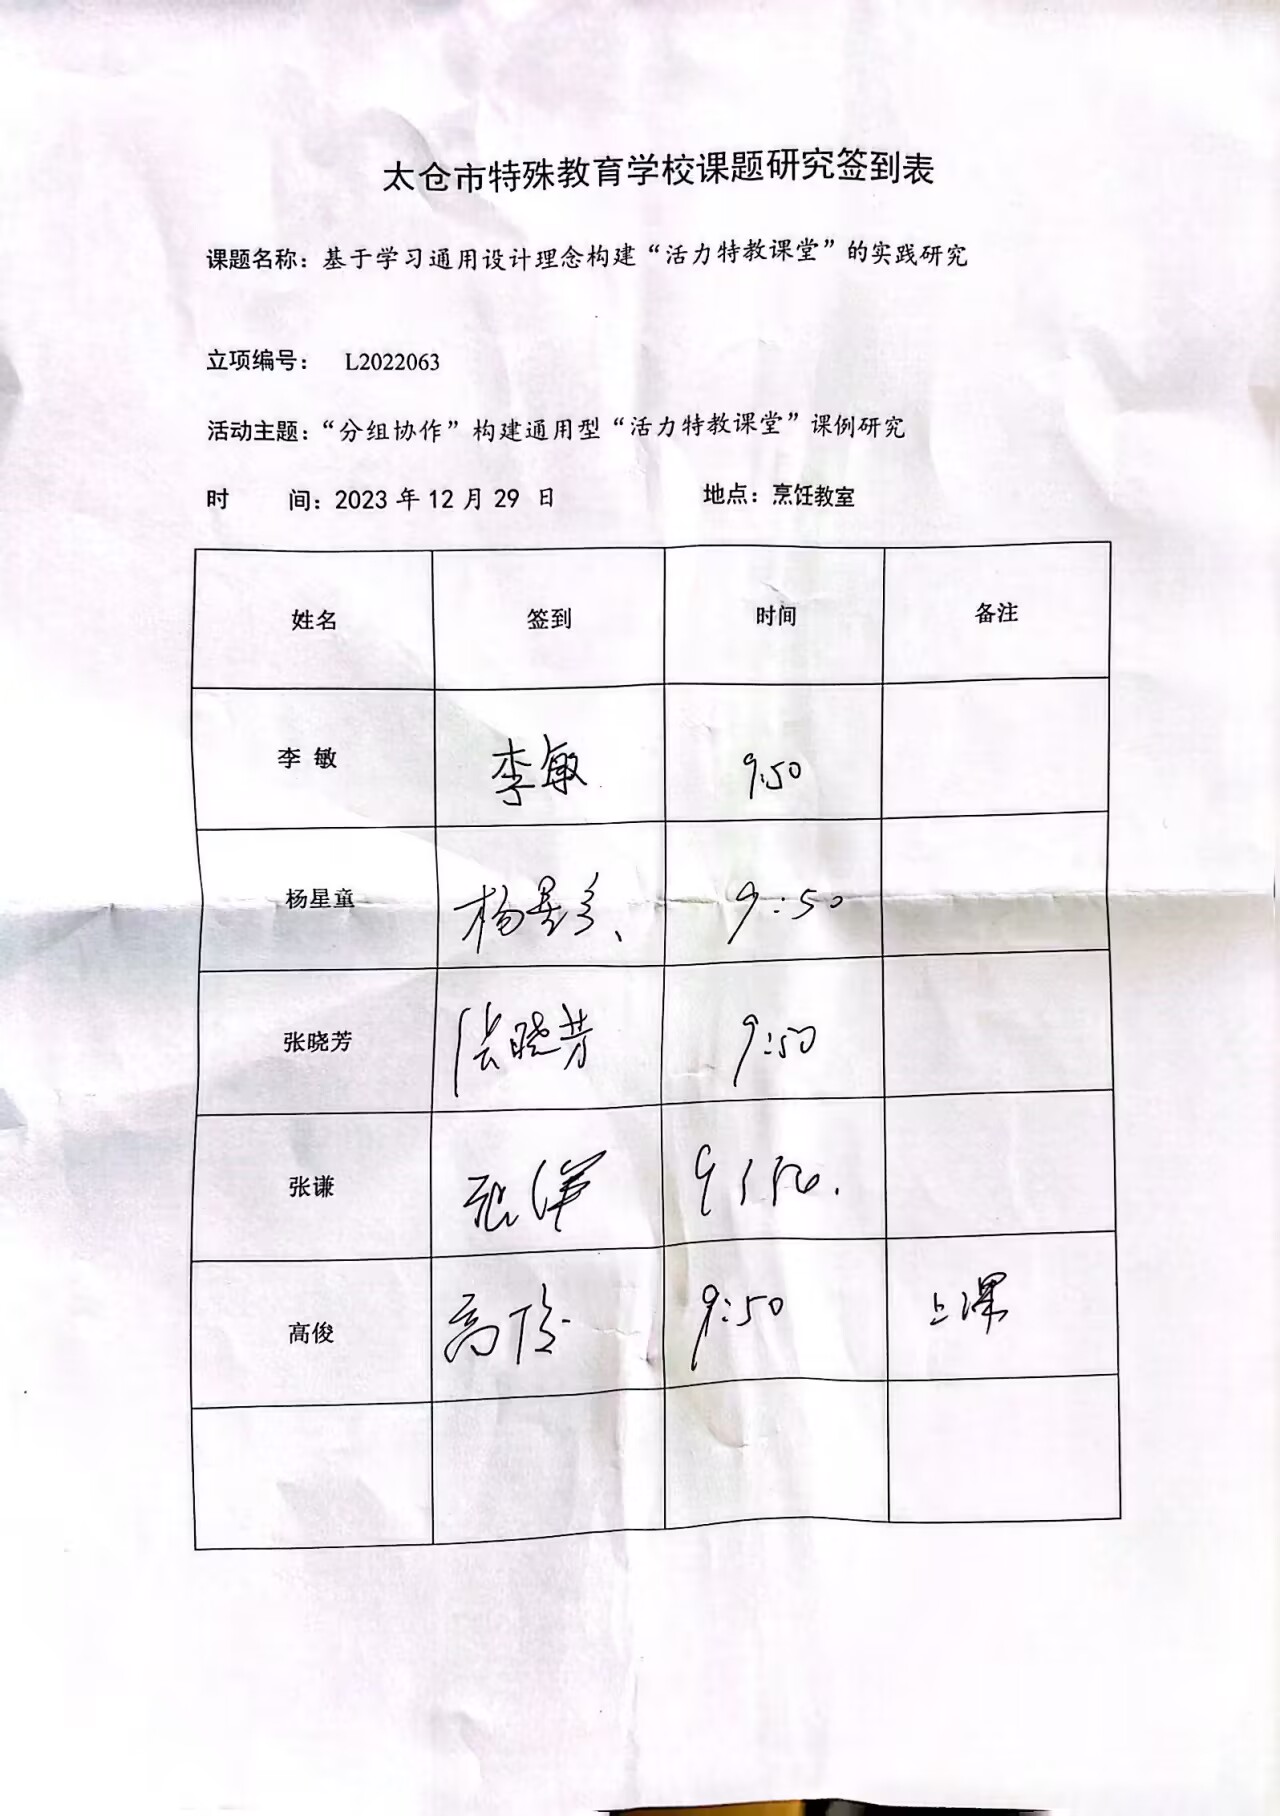 太仓市特殊教育学校课题研究签到表
课题名称：基于学习通用设计理念构建“活力特教课堂”的实践研究
立项编号： L2022063
活动主题：“分组协作”构建通用型“活力特教课堂”课例研究
时 间：2023 年 12 月 29 日 地点：烹饪教室
姓名 签到 时间 备注
李 敏 李敏 9:50
杨星童 杨星 9:50
张晓芳 张晓芳 9:50
张谦 张谦
高俊 高俊 9:50 上课